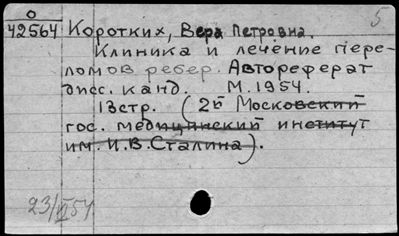 5
О
42564 Коротких, Вера Петровна.
Клиника и лечение пере-
ломов ребер. Автореферат
дисс. канд. М. 1954.
13стр. (2й Московский
гос. медицинский институт
им. И.В.Сталина).
23/VI 54